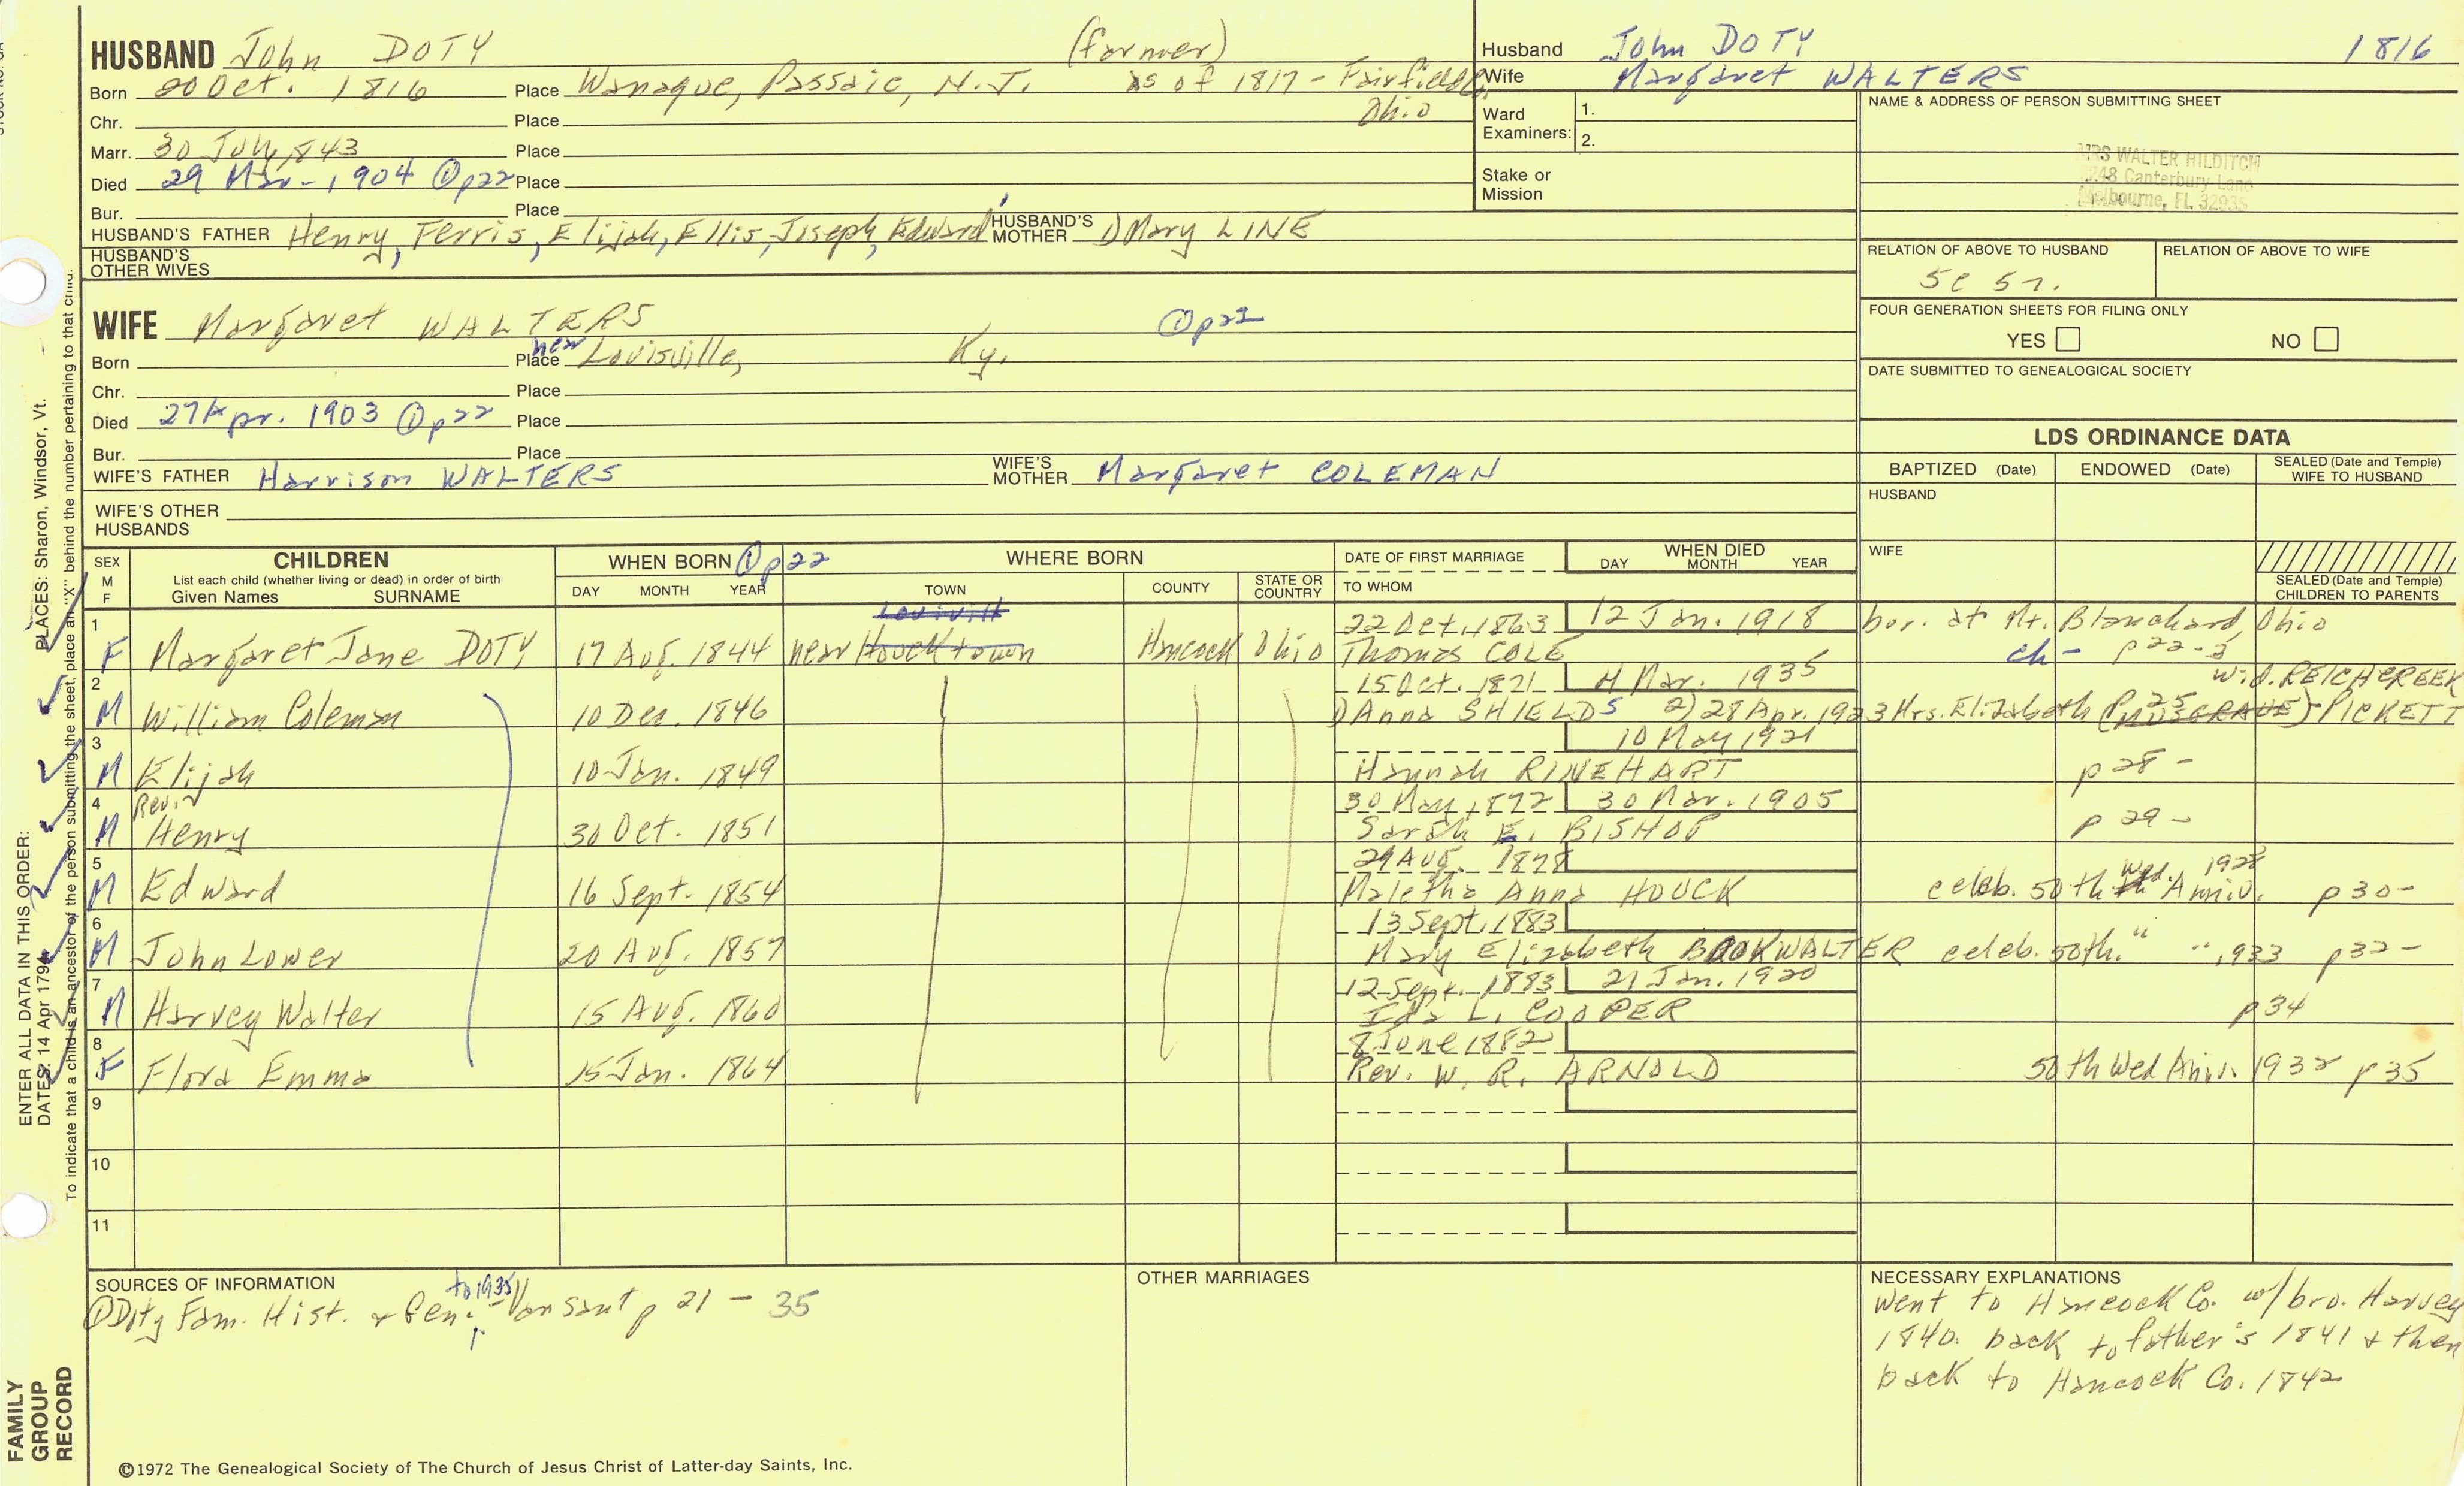 HUSBAND John DOTY (farmer)
Born 20 Oct. 1816 Place Wanaque, Passaic, N.J. as of 1817 - Fairfield Co. Ohio
Chr. Place
Marr. 30 July 1843 Place
Died 29 Mar. 1904 ① p22 Place
Bur. Place
HUSBAND'S FATHER Henry, Ferris, Elijah, Ellis, Joseph, Edward HUSBAND'S MOTHER 1) Mary LINE
HUSBAND'S OTHER WIVES
WIFE Margaret WALTERS ① p21
Born Place near Louisville, Ky.
Chr. Place
Died 27 Apr. 1903 ① p22 Place
Bur. Place
WIFE'S FATHER Harrison WALTERS WIFE'S MOTHER Margaret COLEMAN
WIFE'S OTHER HUSBANDS
Husband John DOTY 1816
Wife Margaret WALTERS
Ward Examiners: 1.
2.
Stake or Mission
NAME & ADDRESS OF PERSON SUBMITTING SHEET
MRS WALTER HILDITCH
248 Canterbury Lane
Melbourne, FL 32935
RELATION OF ABOVE TO HUSBAND RELATION OF ABOVE TO WIFE
FOUR GENERATION SHEETS FOR FILING ONLY
YES NO
DATE SUBMITTED TO GENEALOGICAL SOCIETY
LDS ORDINANCE DATA
BAPTIZED (Date) ENDOWED (Date) SEALED (Date and Temple) WIFE TO HUSBAND
HUSBAND
WIFE
SEALED (Date and Temple) CHILDREN TO PARENTS
SEX M F
CHILDREN
List each child (whether living or dead) in order of birth
Given Names SURNAME
WHEN BORN ① p22
DAY MONTH YEAR
WHERE BORN
TOWN COUNTY STATE OR COUNTRY
DATE OF FIRST MARRIAGE
TO WHOM
WHEN DIED
DAY MONTH YEAR
Louisvill
22 Oct. 1863 12 Jan. 1918 bur. at Mt. Blanchard, Ohio
1 F Margaret Jane DOTY 17 Aug. 1844 near Houcktown Hancock Ohio Thomas COLE ch - p22-3
15 Oct. 1871 4 Mar. 1935
2 M William Coleman 10 Dec. 1846 1) Anna SHIELDS 2) 28 Apr. 1923 Mrs. Elizabeth (MUSGRAVE) PICKETT p25
10 May 1921
3 M Elijah 10 Jan. 1849 Hannah RINEHART p28 -
30 May 1872 30 Mar. 1905
4 M Rev. Henry 30 Oct. 1851 Sarah E. BISHOP p29 -
29 Aug. 1878
5 M Edward 16 Sept. 1854 Maletha Anna HOUCK celeb. 50th Wed. Anniv. 1928 p30 -
13 Sept. 1883
6 M John Lower 20 Aug. 1857 Mary Elizabeth BOOKWALTER celeb. 50th " " 1933 p32 -
12 Sept. 1883 21 Jan. 1920
7 M Harvey Walter 15 Aug. 1860 Ida L. COOPER p34
8 June 1882
8 F Flora Emma 15 Jan. 1864 Rev. W. R. ARNOLD 50th Wed Aniv. 1932 p35
9
10
11
SOURCES OF INFORMATION
① Doty Fam. Hist. & Gen. to 1935 Vansant p 21 - 35
OTHER MARRIAGES
NECESSARY EXPLANATIONS
Went to Hancock Co. w/bro. Harvey
1840. back to father's 1841 & then
back to Hancock Co. 1842
©1972 The Genealogical Society of The Church of Jesus Christ of Latter-day Saints, Inc.
FAMILY GROUP RECORD
ENTER ALL DATA IN THIS ORDER:
DATES: 14 Apr 1794 PLACES: Sharon, Windsor, Vt.
To indicate that a child is an ancestor of the person submitting the sheet, place an "X" behind the number pertaining to that child.